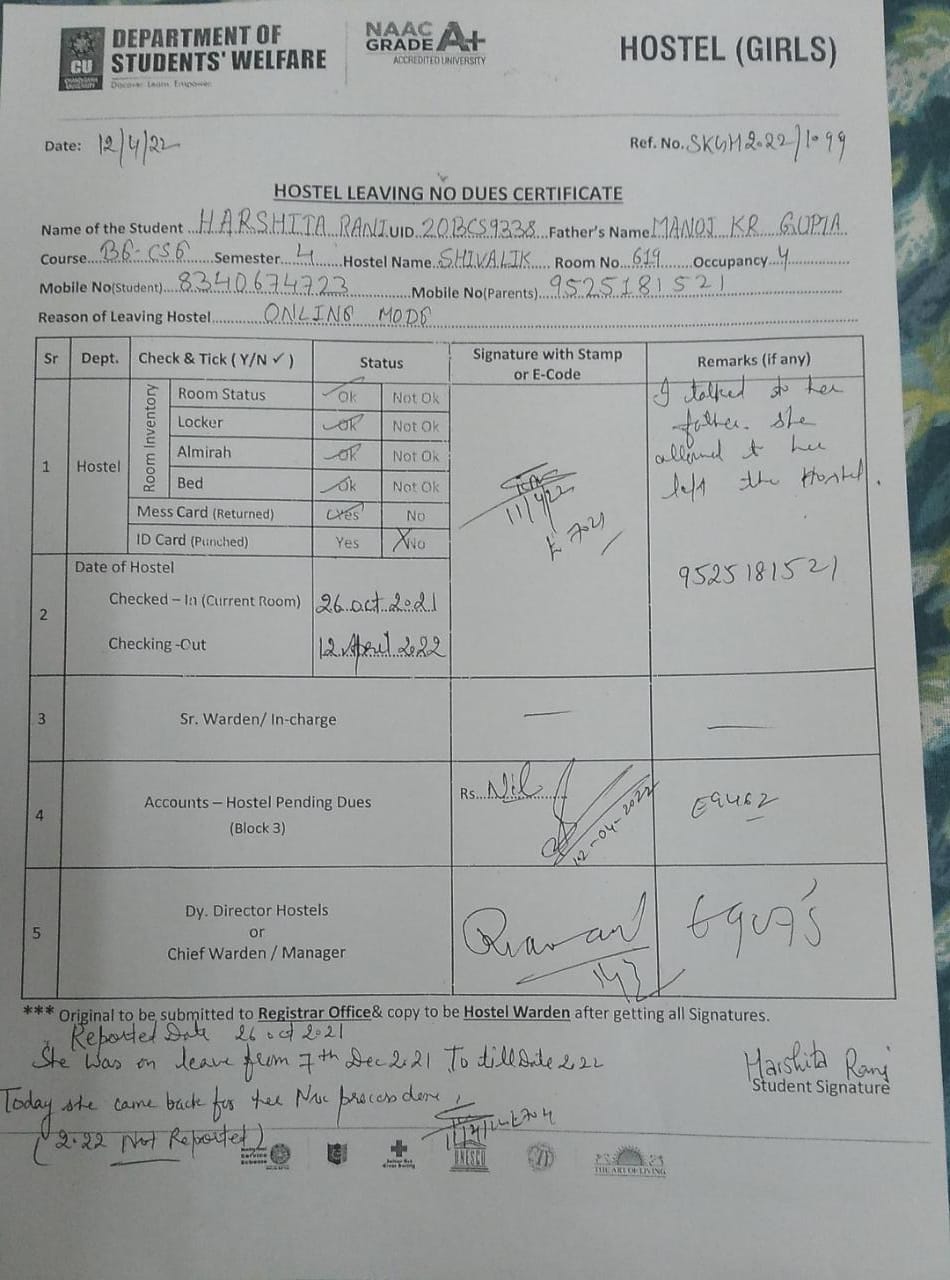 DEPARTMENT OF
STUDENTS' WELFARE
CU
Discover. Learn. Empower.
NAAC
GRADE A+
ACCREDITED UNIVERSITY
HOSTEL (GIRLS)
Date: 12/4/22
Ref. No. SKGH2022/1099
HOSTEL LEAVING NO DUES CERTIFICATE
Name of the Student HARSHITA RANI UID 20BCS9338 Father's Name MANOJ KR GUPTA
Course BE-CSE Semester 4 Hostel Name SHIVALIK Room No 619 Occupancy 4
Mobile No(Student) 8340674723 Mobile No(Parents) 9525181521
Reason of Leaving Hostel ONLINE MODE
Sr Dept. Check & Tick ( Y/N ✓ ) Status Signature with Stamp or E-Code Remarks (if any)
1 Hostel Room Inventory
Room Status Ok Not Ok
Locker Ok Not Ok
Almirah Ok Not Ok
Bed Ok Not Ok
Mess Card (Returned) Yes No
ID Card (Punched) Yes No
11/4/22
I talked to her
father. she
allowed to her
left the Hostel.
9525181521
2 Date of Hostel
Checked – In (Current Room) 26 oct 2021
Checking -Out 12 April 2022
3 Sr. Warden/ In-charge
4 Accounts – Hostel Pending Dues
(Block 3)
Rs. Nil
12-04-2022
5 Dy. Director Hostels
or
Chief Warden / Manager
*** Original to be submitted to Registrar Office& copy to be Hostel Warden after getting all Signatures.
Reported Date 26 oct 2021
She was on leave from 7th Dec 2021 To till Date 2022
Today she came back for process done
(2022 Not Reported)
Harshita Rani
Student Signature
UNESCO
THE ART OF LIVING